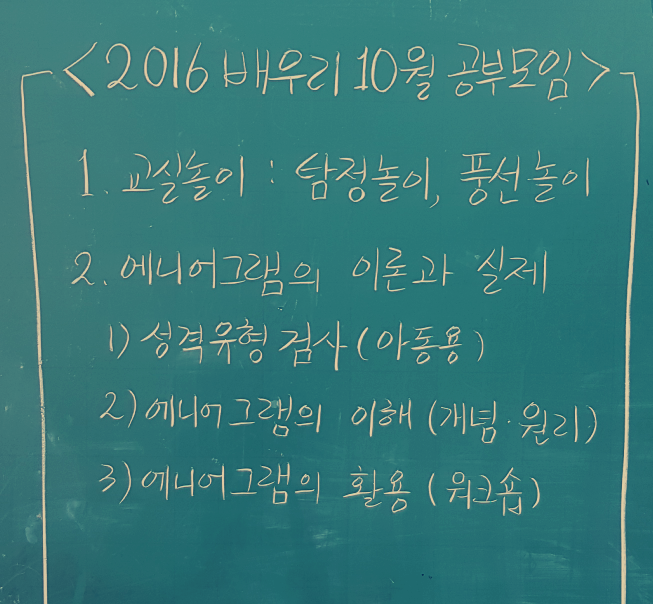 <2016 배우리 10월 공부모임>
1. 교실놀이 : 탐정놀이, 풍선놀이
2. 에니어그램의 이론과 실제
1) 성격유형 검사 (아동용)
2) 에니어그램의 이해 (개념·원리)
3) 에니어그램의 활용 (워크숍)